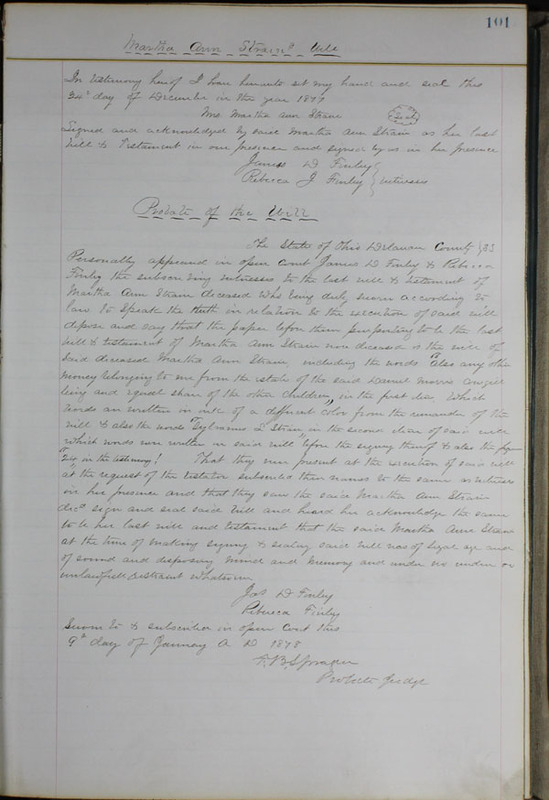 101
Martha Ann Strain's Will
In testimony heirof I have hereunto set my hand and seal this
24th day of December in the year 1877
Mrs Martha Ann Strane Seal
Signed and acknowledged by said Martha Ann Strain as her last
will & Testament in our presence and signed by us in her presence
James D Finley
Rebecca J Finley } witnesses
Probate of the Will
The State of Ohio Delaware County } SS
Personally appeared in open Court James D Finley & Rebecca
Finley the subscribing witnesses to the last will & testament of
Martha Ann Strain deceased who being duly sworn according to
law to speak the truth in relation to the execution of said will
depose and say that the paper before them purporting to be the last
will & testament of Martha Ann Strain now deceased is the will of
said deceased Martha Ann Strain, including the words "Also any other
money belonging to me from the estate of the said Daniel Morris
being and equal share of the other children," in the first clear, Which
words are written in ink of a different color from the remainder of the
will & also the words "Sylvanus L Strain in the second clear of said will
which words were written in said will before the signing thereof & also the figures
"24 in the testimony! That they were present at the execution of said will
at the request of the testator subscribed their names to the same as witnesses
in her presence and that they saw the said Martha Ann Strain
decd sign and seal said will and heard her acknowledge the same
to be her last will and testament that the said Martha Ann Strane
at the time of making signing & sealing said will was of legal age and
of sound and disposing mind and memory and under no undue or
unlawfull restraint whatsoever
Jas D Finley
Rebecca Finley
Sworn to & subscribed in open Court this
9th day of January A D 1878
F. B. Sprague
Probate Judge